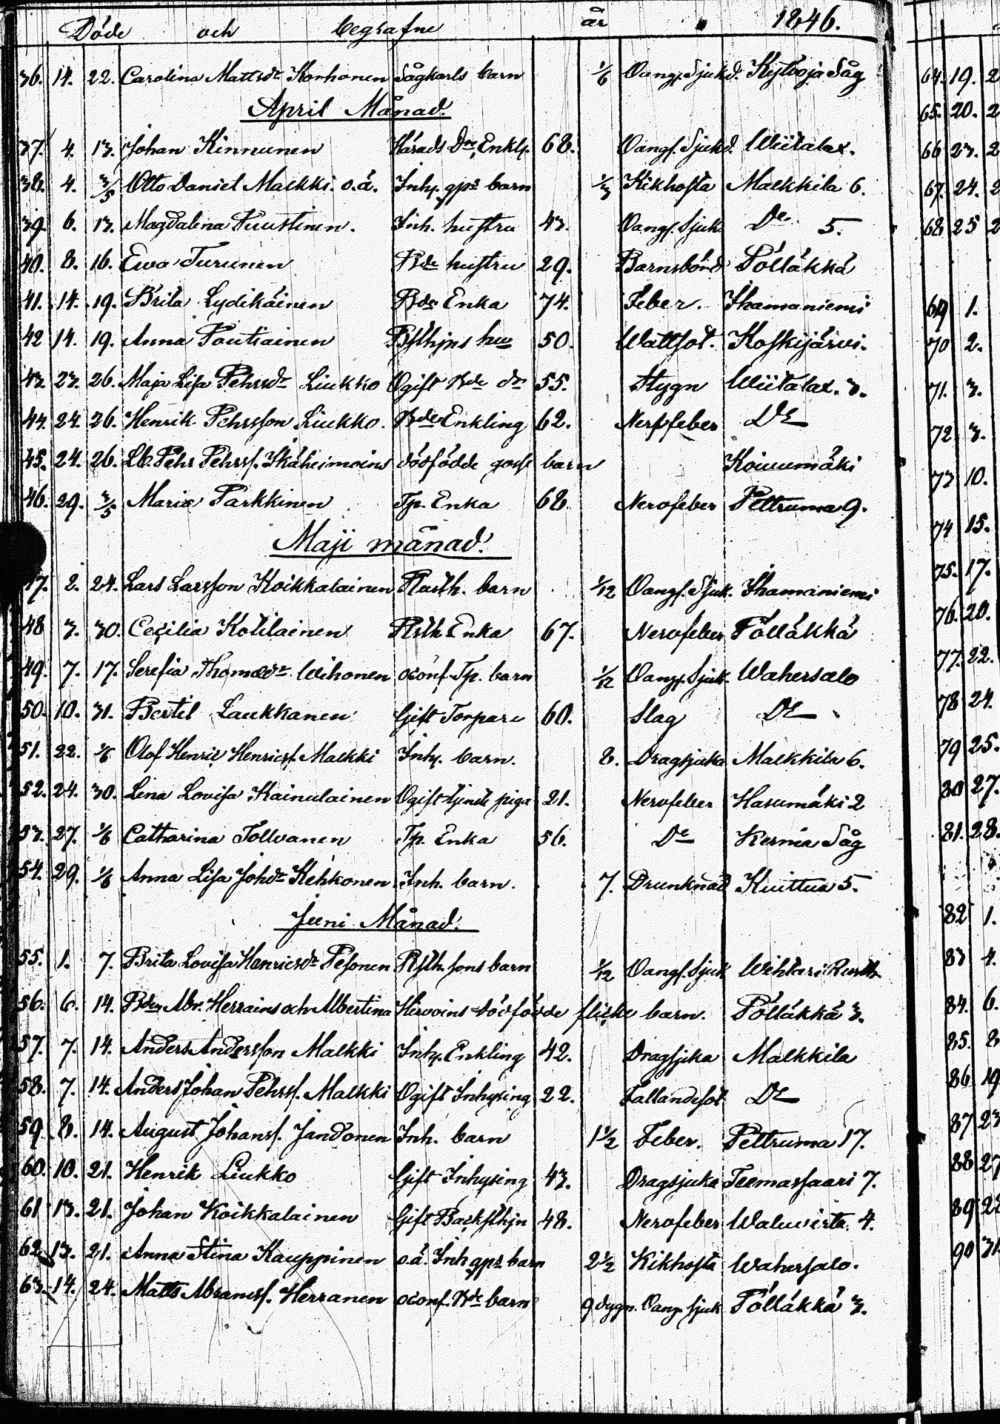 Döde och begrafne år 1846.
36. 14. 22. Carolina Mattsdr Korhonen Sågkarls barn 1/6 Oang. Sjukd. Kytöoja Såg
April Månad.
37. 4. 13. Johan Kinnunen Härads Enkl. 68. Oang. Sjukd. Wiitalax.
38. 4. 3/5 Otto Daniel Malkki o.ä. Inh. gps barn 1/3 Kikhosta Malkkila 6.
39. 6. 13. Magdalena Tuustinen. Inh. hustru 43. Oang. Sjuk. Do 5.
40. 8. 16. Ewa Turunen Bde hustru 29. Barnsbörd Pöllákká
41. 14. 19. Brita Lydikäinen Bde Enka 74. Feber.
42 14. 19. Anna Poutiainen 50. Wattsot. Koskijärvi.
43. 23. 26. Maja Lisa Pehrsdr Liukko Ogift Bde dr 55. Stygn Wiitalax. 3.
44. 24. 26. Henrik Pehrsson Liukko. Bde Enkling 62. Nerffeber Do
45. 24. 26. Pehr Pehrss. dödfödde goss barn Koivumäki
46. 29. 3/5 Maria Parkkinen Tp. Enka 68 Nervfeber Pettruma 9.
Maji månad.
47. 2. 24. Lars Larsson Koikkalainen Rusth. barn 1/12 Oang. Sjuk.
48 3. 30. Cecilia Kotilainen Rsth Enka 67. Nervfeber Pöllákká
49. 7. 17. Serefia Thomasdr Wihonen oconf. Tp. barn 1/12 Oang. Sjuk Wahersalo
50. 10. 31. Bertil Laukkanen Gift Torpare 60. Slag Do
51. 22. 1/6 Olof Henric Henricss. Malkki Inh. barn. 8. Dragsjuka Malkkila 6.
52. 24. 30. Lena Lovisa Kainulainen Ogift tjenste piga 21. Nervfeber Hasumäki 2
53. 27. 1/6 Catharina Tollvanen Tp. Enka 56. Do Kermä Såg
54. 29. 1/6 Anna Lisa Johdr Kehkonen Inh. barn. 7. Drunknad Kuittua 5.
Juni Månad.
55. 1. 7. Brita Lovisa Henricsdr Pesonen Rsth. sons barn 1/12 Oang. Sjuk Wihtari
56. 6. 14. Bden Abr. Herrains och Albertina Hirvoins dödfödde flicke barn. Pöllákká 3.
57. 7. 14. Anders Andersson Malkki Inh. Enkling 42. Dragsjuka Malkkila
58. 7. 14. Anders Johan Pehrss. Malkki Ogift Inhysing 22. Fallandesot Do
59. 8. 14. August Johanss. Jandonen Inh. barn 1 1/2 Feber. Pettruma 17.
60. 10. 21. Henrik Liukko Gift Inhysing 43. Dragsjuka Teemassaari 7.
61 13. 21. Johan Koikkalainen Gift Backsthjn 48. Nervfeber Waluvirta 4.
62 13. 21. Anna Stina Kauppinen o.ä. Inh gps barn 2 1/2 Kikhosta Wahersalo.
63. 14. 24. Matts Abramss. Herranen oconf. Bde barn 9 dygn. Oang. sjuk Pöllákká 3.
64. 19. 2
65. 20. 2
66 23. 2
67. 24. 2
68 25 2
69 1.
70 2.
71. 3.
72 3.
73 10.
74 15.
75. 17.
76. 20.
77. 22.
78 24.
79 25.
80 27.
81. 28.
82 1.
83 4.
84. 6.
85. 8
86 19
87 23
88 27
89 28
90 31